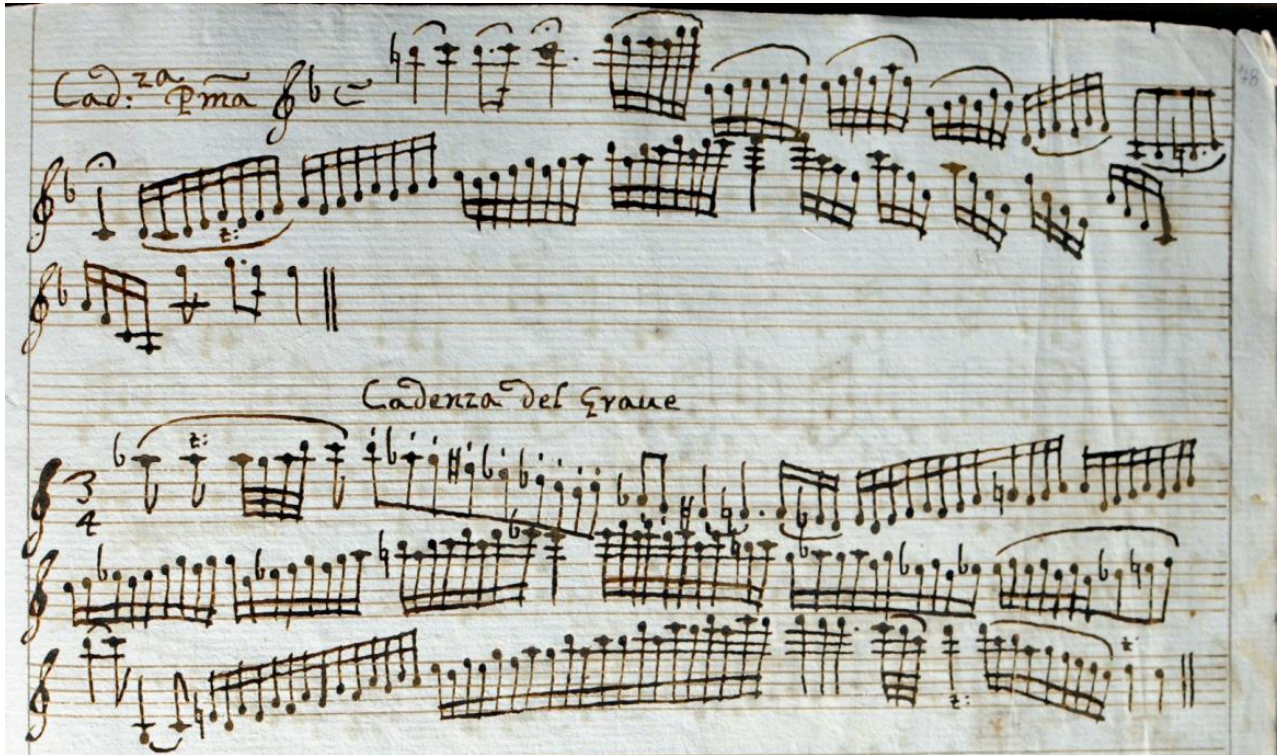 Cad:za Pma
78
Cadenza del Graue
3
4